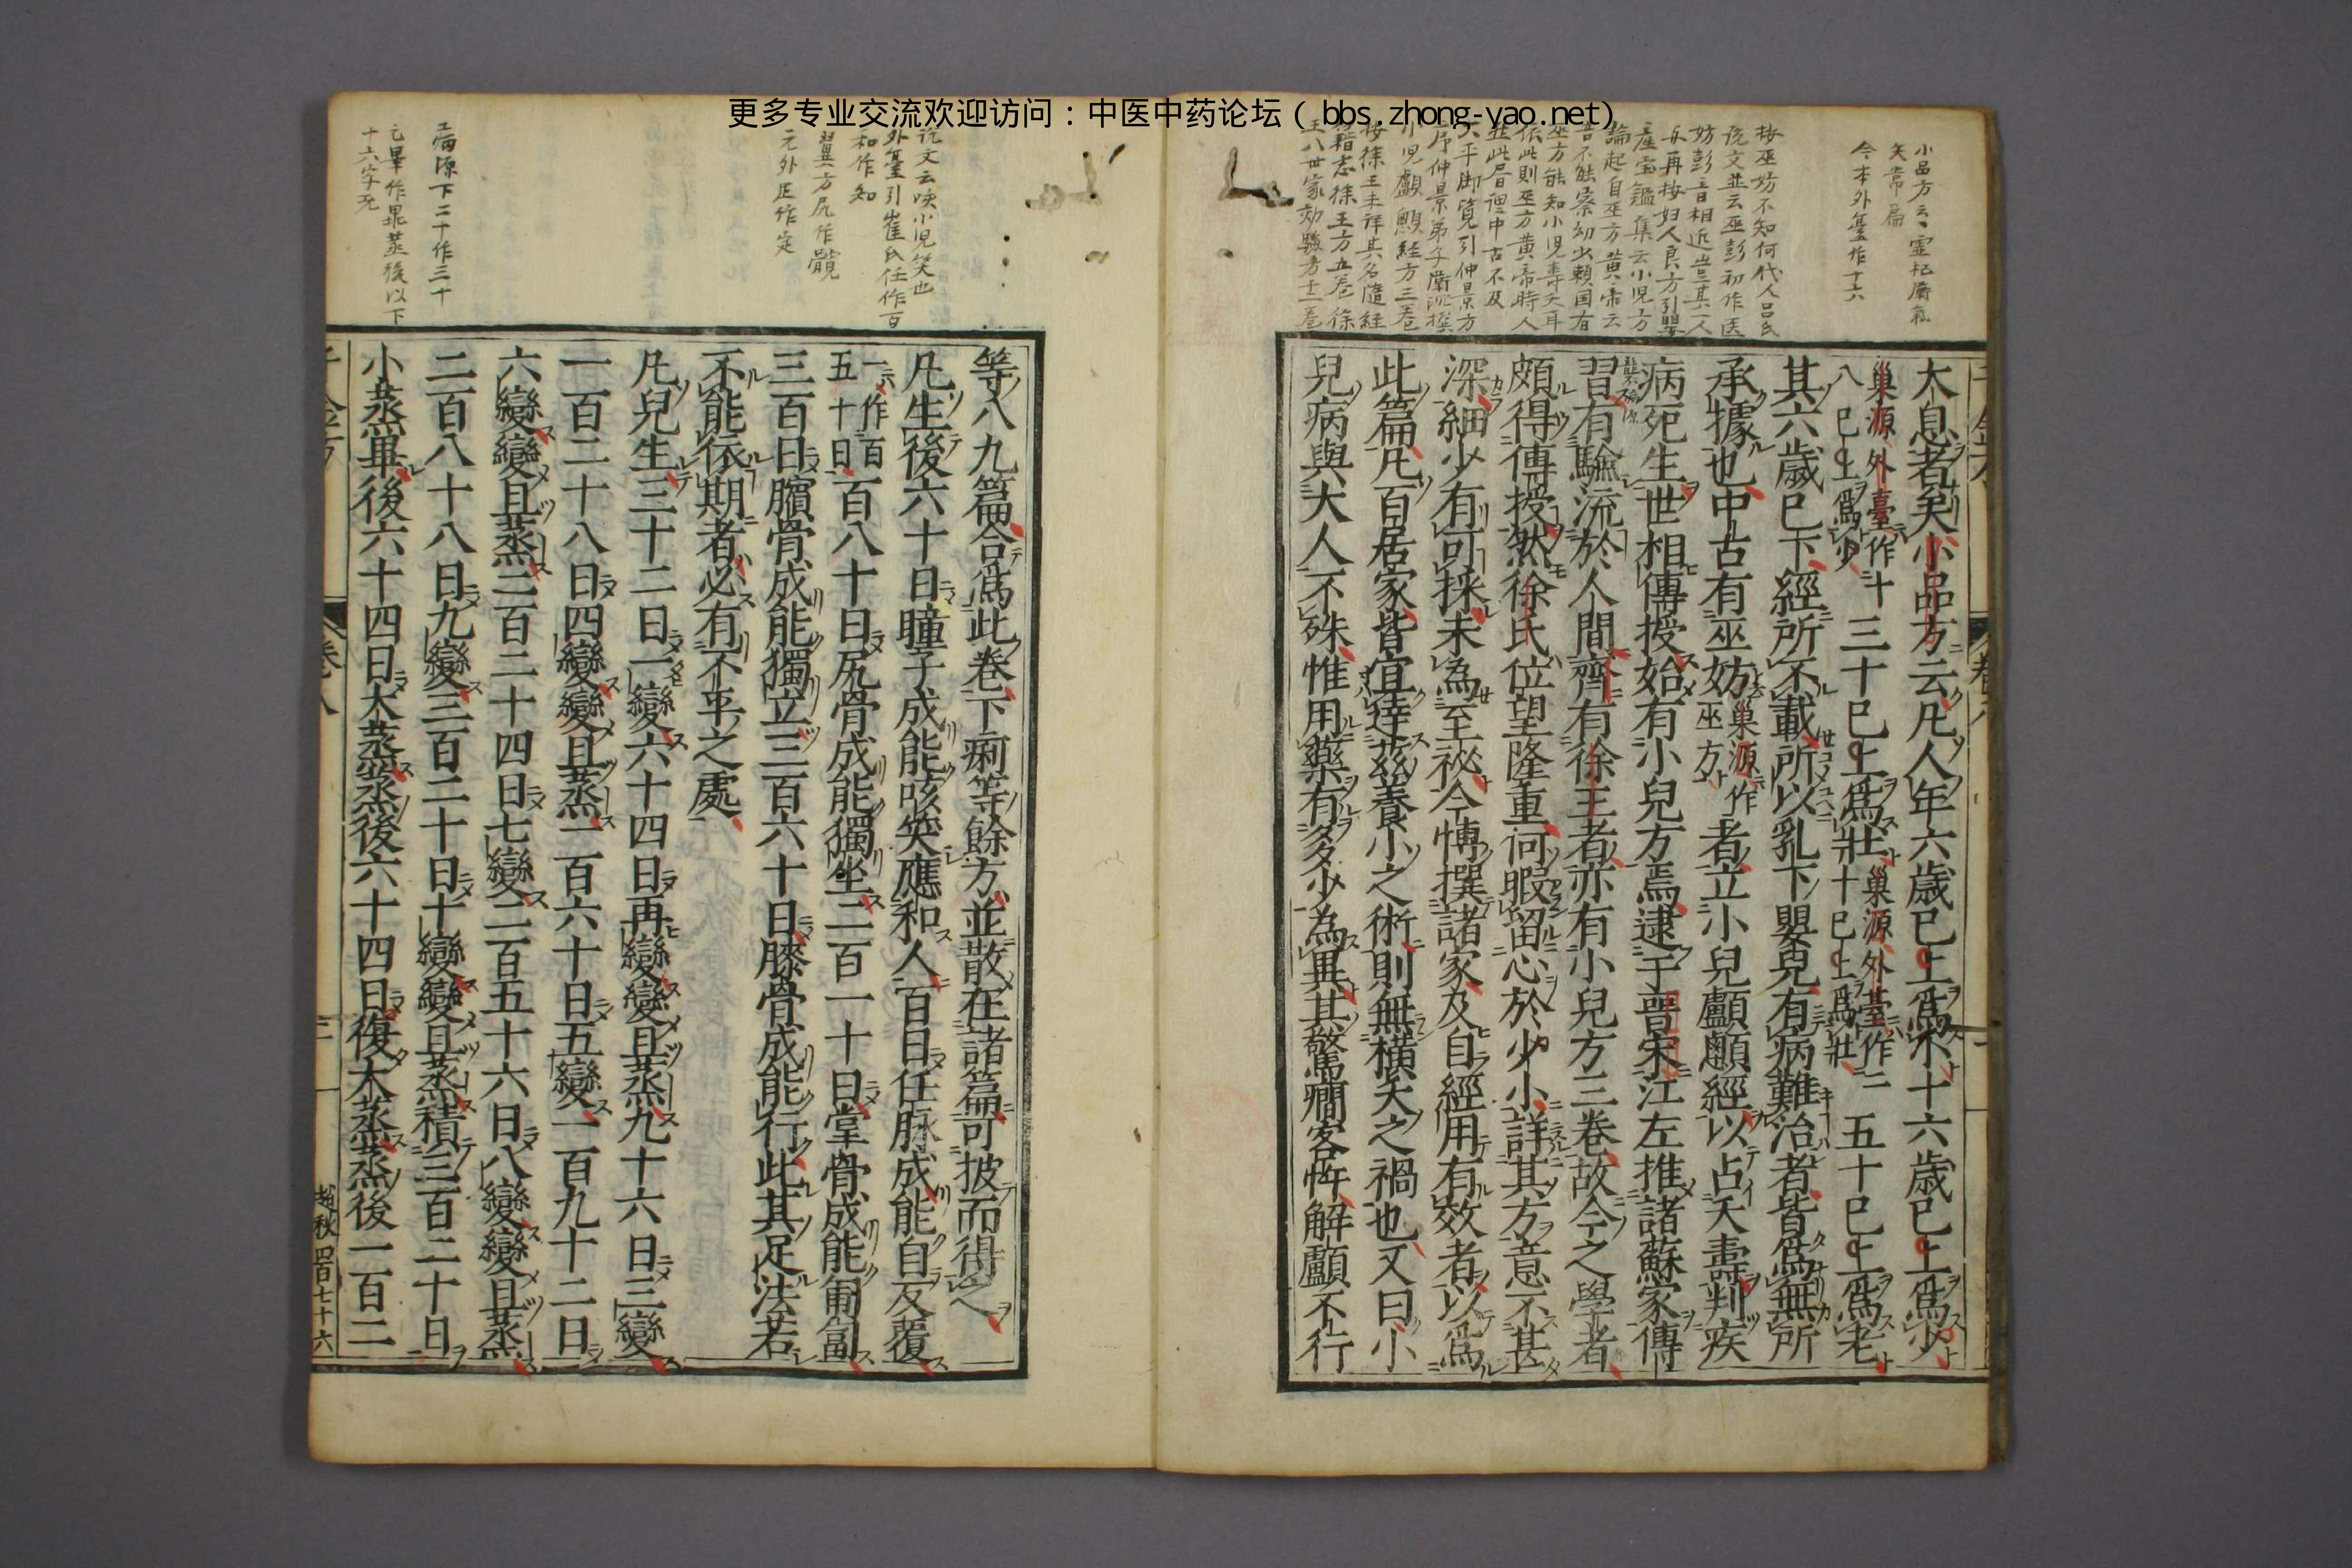 更多专业交流欢迎访问：中医中药论坛（bbs.zhong-yao.net）
小品方云云靈杞
矢常扁
今本外臺作十六
按巫妨不知何代人呂氏
說文並云巫彭初作医
妨彭音相近豈其一人
產宝鑑集云小児方
論起自巫方黄帝云
吾不能察幼少賴国有
巫方能知小児壽夭耳
依此則巫方黄帝時人
並此居謂中古不及
太平御覧引仲景方
序仲景弟子衛沉撰
小児顱顖経方三卷
按徐王未詳其名隨経
籍志徐王方五卷徐
王八世家効驗方十卷
太息者矣小品方云凡人年六歲已上爲小十六歲已上爲少
巢源外臺作十
八已上爲少
三十已上爲壯
巢源外臺作二
十已上爲壯
五十已上爲老
其六歲已下經所不載所以乳下嬰兒有病難治者皆爲無所
承據也中古有巫妨
巢源作
巫方
者立小兒顱顖經以占夭壽判疾
病死生世相傳授始有小兒方焉逮于晉宋江左推諸蘇家傳
習有驗流於人間齊有徐王者亦有小兒方三卷故今之學者
頗得傳授然徐氏位望隆重何暇留心於少小詳其方意不甚
深細少有可採未為至祕今博撰諸家及自經用有效者以爲
此篇凡百居家皆宜達茲養小之術則無橫夭之禍也又曰小
兒病與大人不殊惟用藥有多少為異其驚癇客忤解顱不行
說文云咳小児笑也
外臺引崔氏任作百
和作知
翼方尻作髖
元外匠作定
病源下二十作三十
元畢作是蒸後以下
十六字无
等八九篇合爲此卷下痢等餘方並散在諸篇可披而得之
凡生後六十日瞳子成能咳笑應和人百日任脉成能自反覆
一作百
五十日
百八十日尻骨成能獨坐二百一十日掌骨成能匍匐
三百日臏骨成能獨立三百六十日膝骨成能行此其定法若
不能依期者必有不平之處
凡兒生三十二日一變六十四日再變變且蒸九十六日三變
一百二十八日四變變且蒸一百六十日五變一百九十二日
六變變且蒸二百二十四日七變二百五十六日八變變且蒸
二百八十八日九變三百二十日十變變且蒸積三百二十日
小蒸畢後六十四日大蒸蒸後六十四日復大蒸蒸後一百二
卷八
趙秋 四百七十六